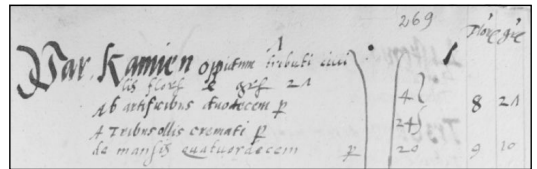 269
Flore gre
Par. Kamien Opidum tributi civi
lis flore 8 gre 21
ab artificibus duodecem p 4 8 21
A Tribus ollis cremati p 24
de mansis quatuordecem p 20 9 10